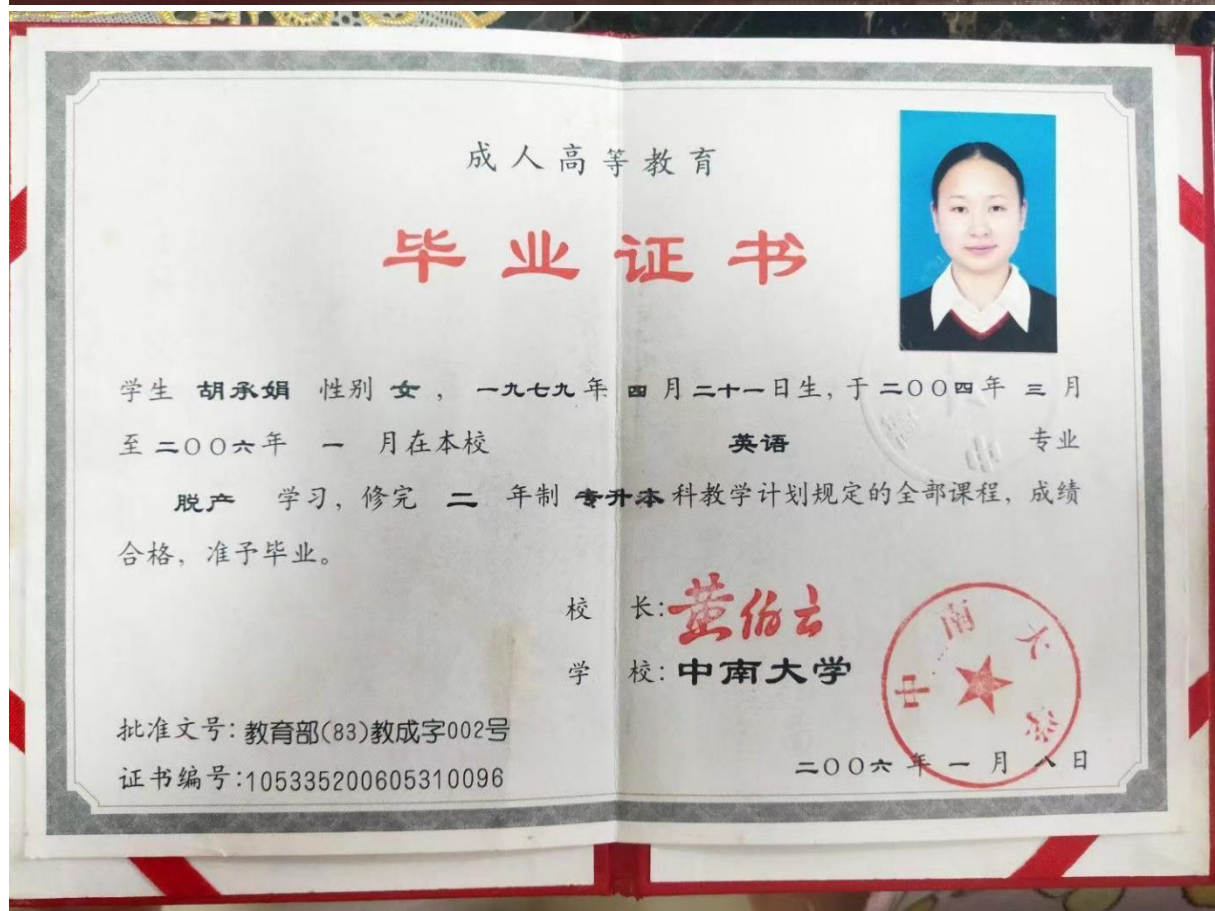 成人高等教育
毕业证书
学生 胡承娟 性别 女 ， 一九七九 年 四 月 二十一 日生，于 二〇〇四 年 三 月
至 二〇〇六 年 一 月在本校 英语 专业
脱产 学习，修完 二 年制 专升本 科教学计划规定的全部课程，成绩
合格，准予毕业。
校 长：黄伯云
学 校：中南大学
中南大学
批准文号：教育部(83)教成字002号
证书编号：105335200605310096
二〇〇六 年 一 月 八 日